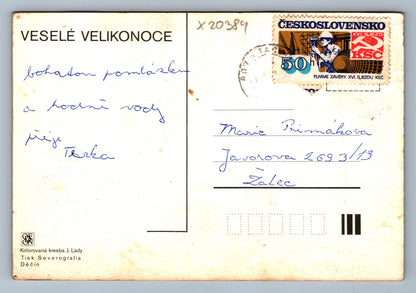 X 20384
VESELÉ VELIKONOCE
ČESKOSLOVENSKO
XVI. SJEZD
KSČ
50
PLNÍME ZÁVĚRY XVI. SJEZDU KSČ
bohatou pomlázku
a hodně vody
přeje
Terka
Marie Primákova
Javorova 2693/19
Žatec
Kolorovaná kresba J. Lady
Tisk Severografia
Děčín